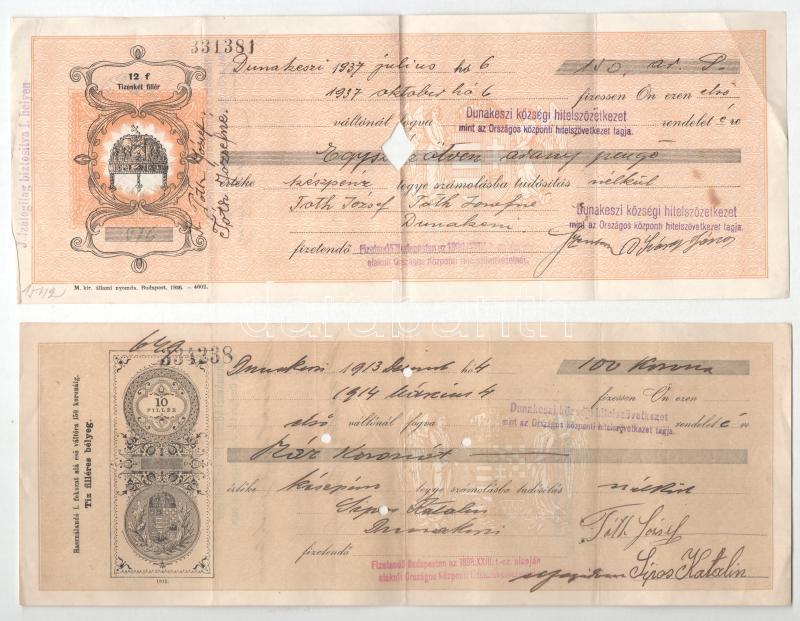 331381
12 f
Tizenkét fillér
Dunakeszi 1937 július hó 6
150, ar. P.
1937 oktober hó 6 fizessen Ön ezen első
váltónál fogva
Dunakeszi községi hitelszözetkezet
mint az Országos központi hitelszövetkezet tagja.
rendeletére
Egyszázötven arany pengő
értéke készpénz tegye számolásba tudósítás nélkül
Tóth József Tóth Józsefné
Dunakeszi
Dunakeszi községi hitelszözetkezet
mint az Országos központi hitelszövetkezet tagja.
fizetendő
Fizetendő Budapesten az 1898
alakult Országos Központi Hitelszövetkezetnél.
Tóth József
Tóth Józsefné
M. kir. állami nyomda. Budapest, 1936. — 4602.
darabanth
649
334238
10
FILLÉR
Használandó I. fokozat alá eső váltóra 150 koronáig.
Tíz filléres bélyeg.
1912.
Dunakeszi 1913 Decemb hó 4
100 Korona
1914 Március 4 fizessen Ön ezen
első váltónál fogva
Dunakeszi községi hitelszövetkezet
mint az Országos központi hitelszövetkezet tagja.
rendeletére
Száz Koronát
értéke készpénz tegye számolásba tudósítás nélkül
Sipos Katalin
Dunakeszi
Tóth József
fizetendő
Fizetendő Budapesten az 1898:XXIII. t.-cz. alapján
alakult Országos Központi Hitelszövetkezetnél.
Sipos Katalin